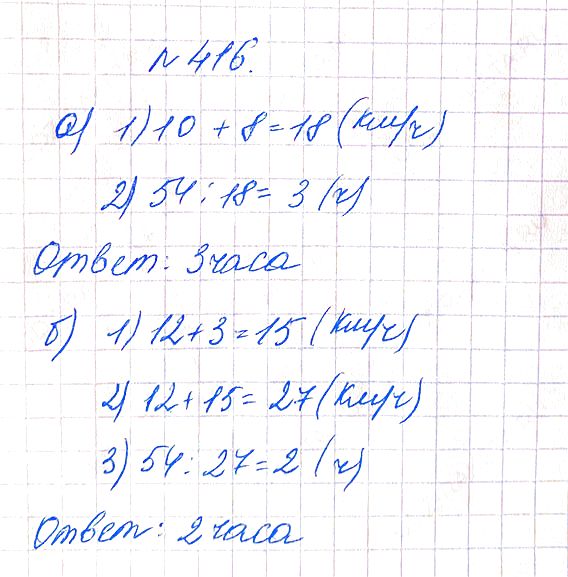 № 416.
а) 1) 10 + 8 = 18 (км/ч)
2) 54 : 18 = 3 (ч)
Ответ: 3 часа
б) 1) 12 + 3 = 15 (км/ч)
2) 12 + 15 = 27 (км/ч)
3) 54 : 27 = 2 (ч)
Ответ: 2 часа